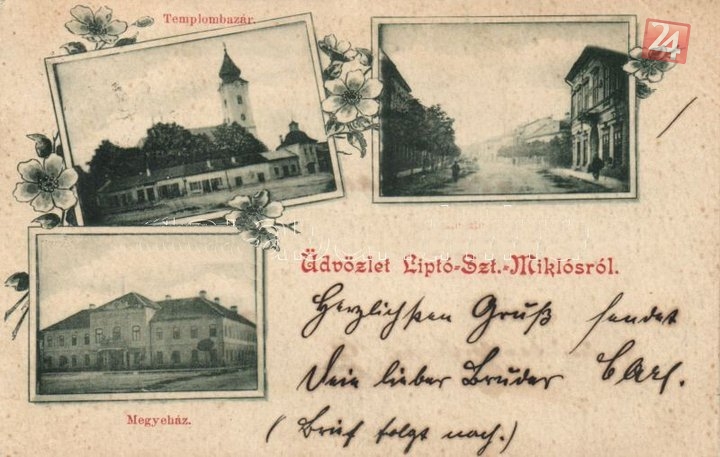 Templombazár.
24
Üdvözlet Liptó-Szt.-Miklósról.
Herzlichsten Gruß sendet
Dein lieber Bruder Carl.
(Brief folgt nach.)
Megyeház.